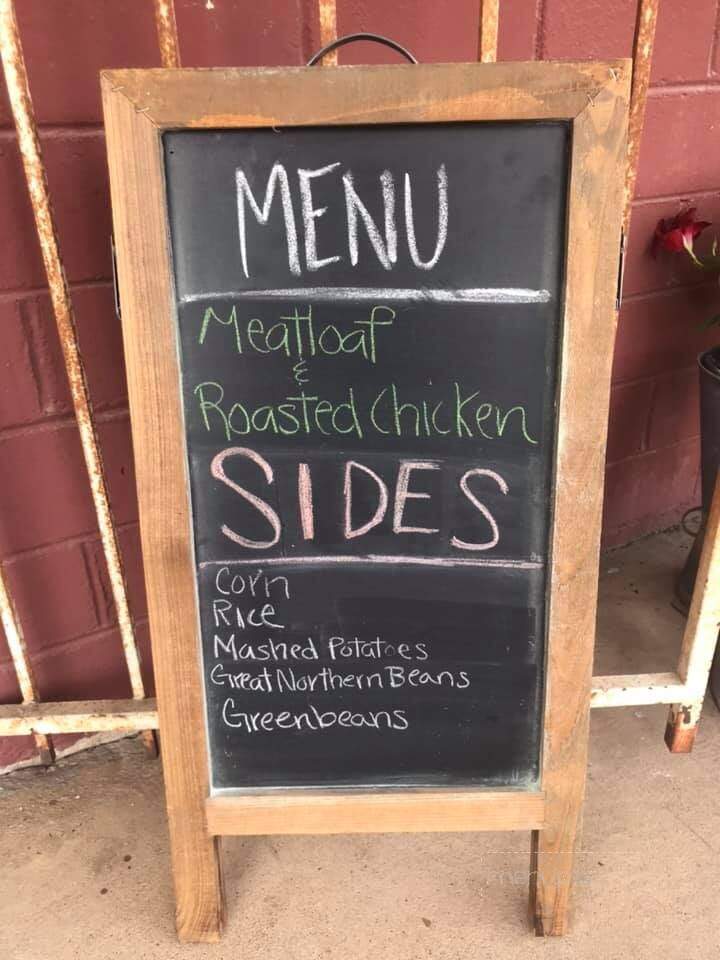 MENU
Meatloaf
&
Roasted Chicken
SIDES
Corn
Rice
Mashed Potatoes
Great Northern Beans
Greenbeans